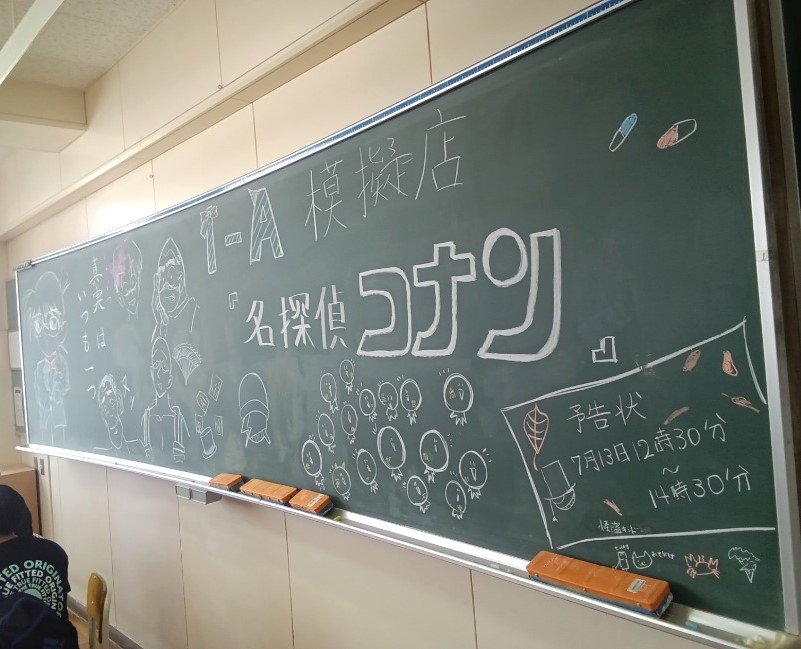 1-A 模擬店
『名探偵コナン』
真実は
いつも一つ
予告状
7月13日12時30分
～
14時30分
怪盗キッド
TED ORIGINAT
UE FITTED ORIGIN
TRUE FITTE